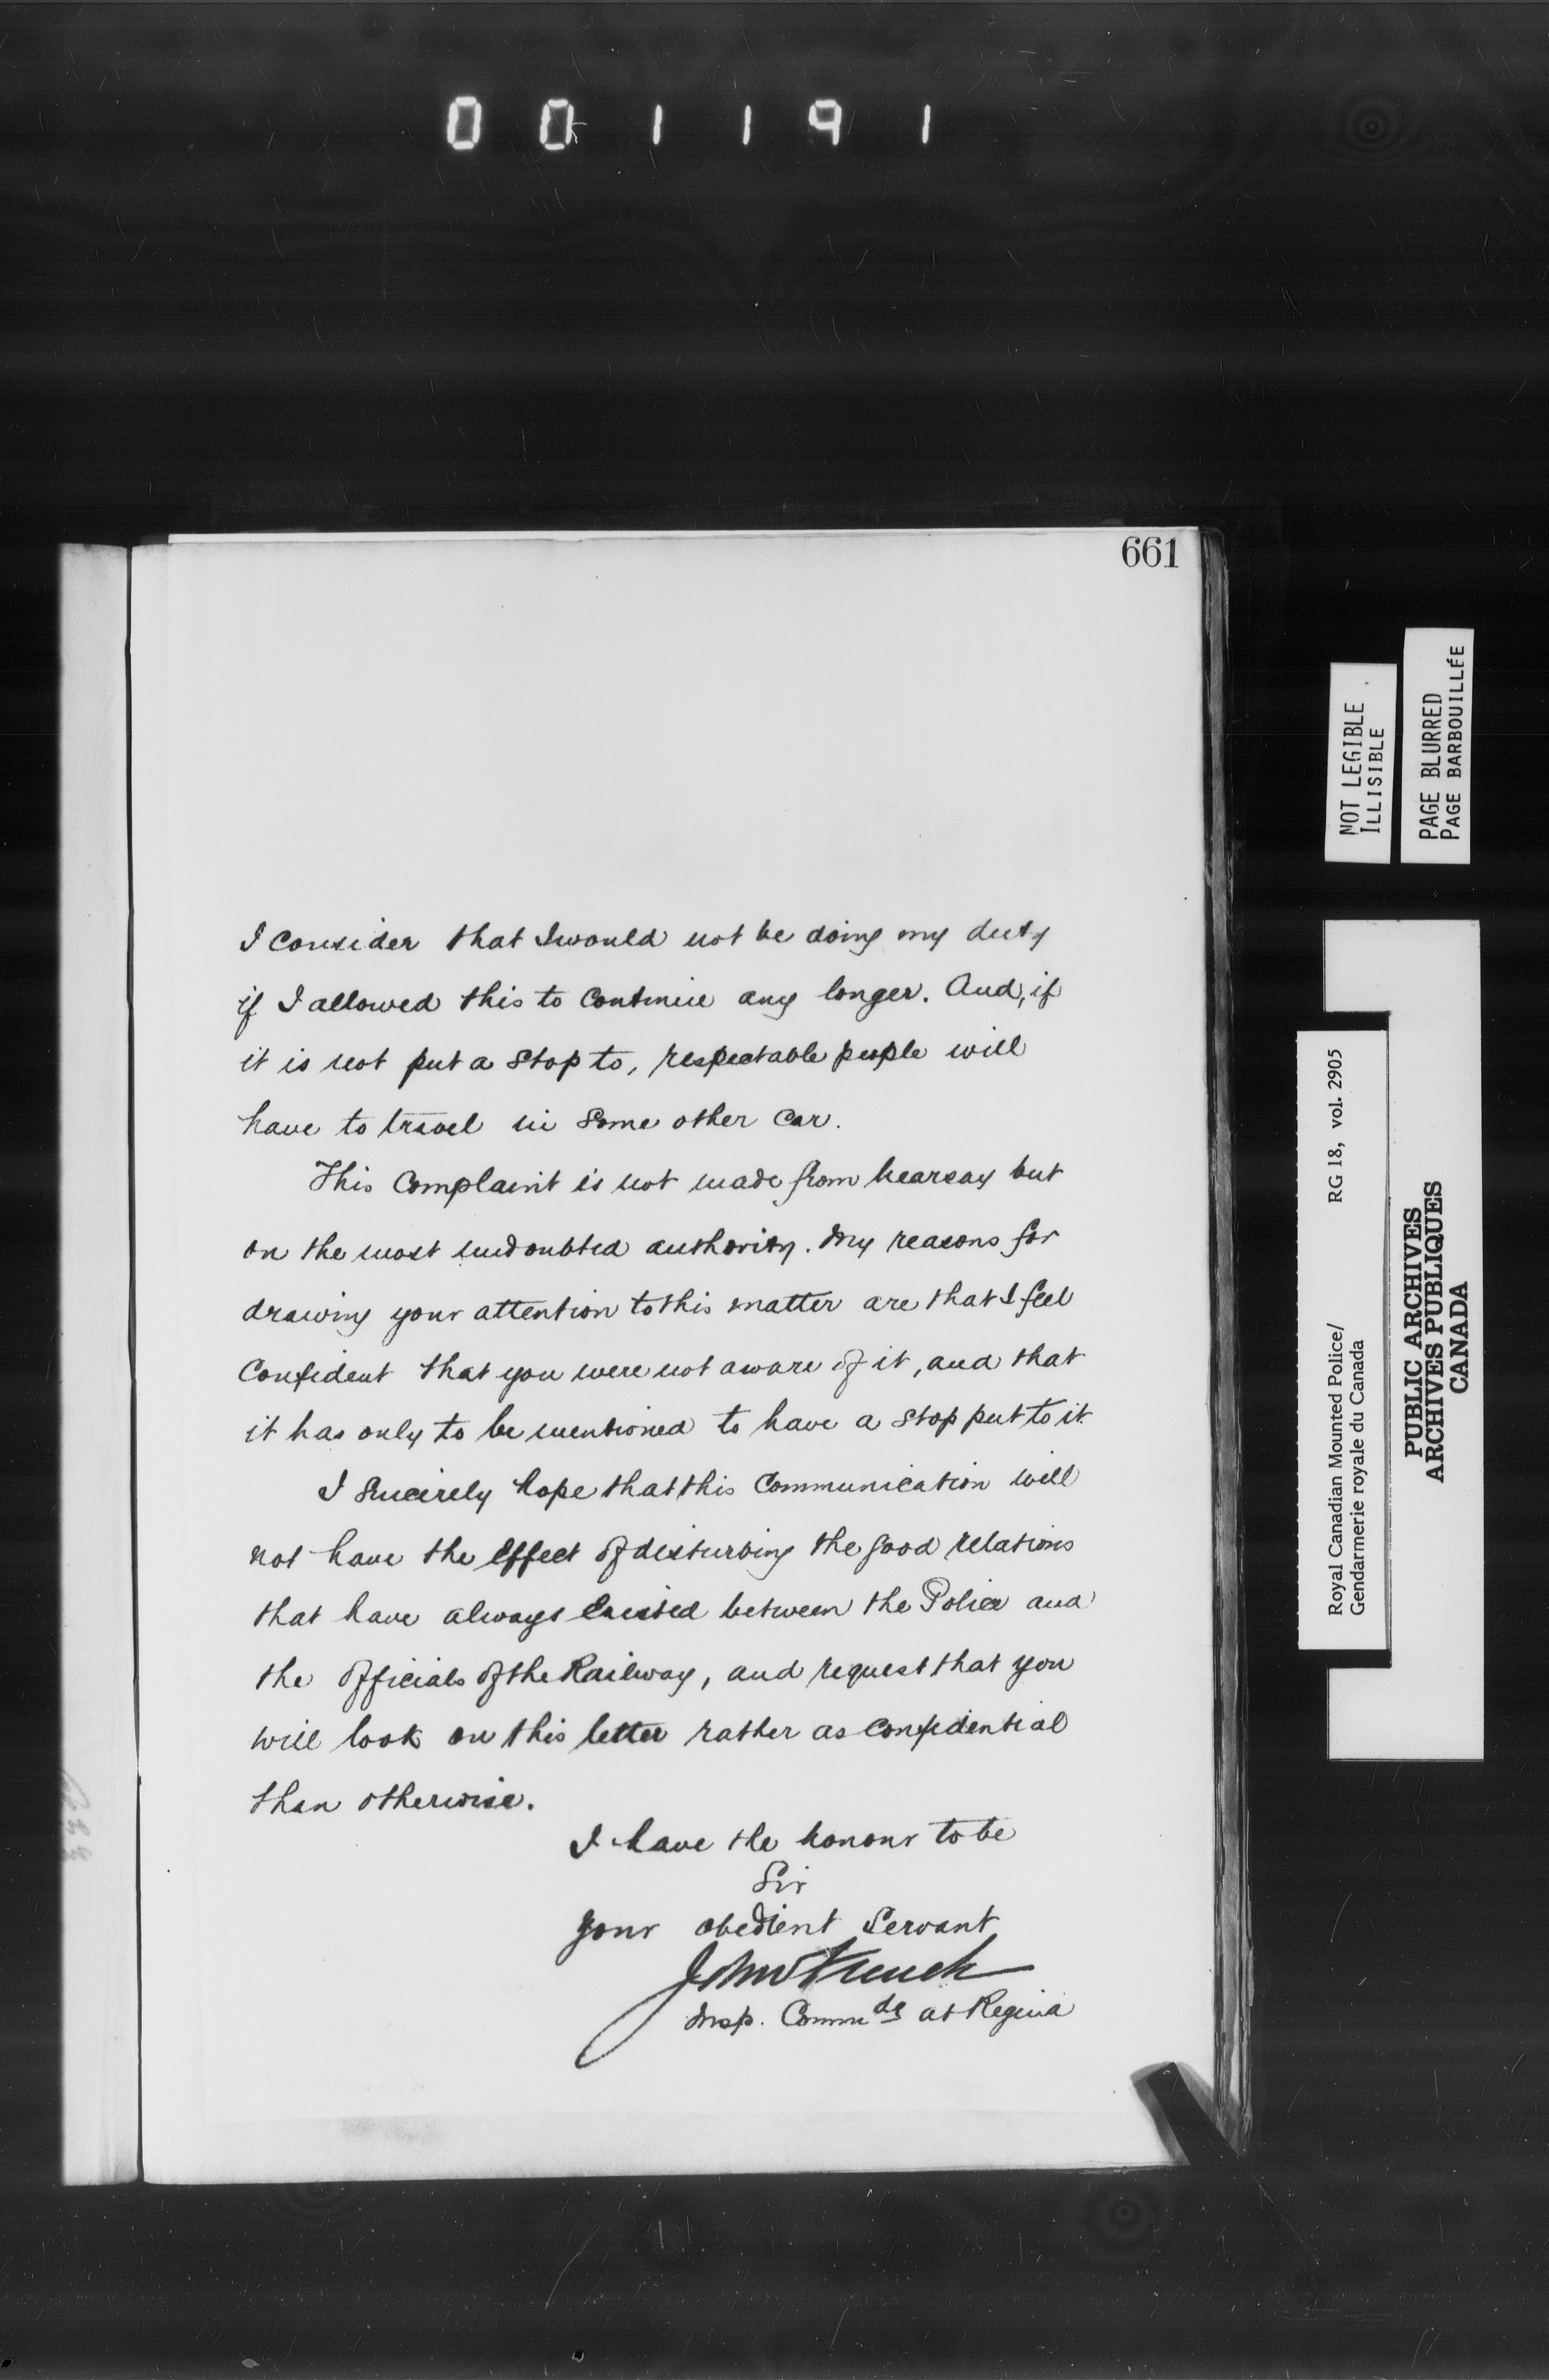 001191
661
I consider that I would not be doing my duty
if I allowed this to continue any longer. And, if
it is not put a stop to, respectable people will
have to travel in some other car.
This Complaint is not made from hearsay but
on the most undoubted authority. My reasons for
drawing your attention to this matter are that I feel
Confident that you were not aware of it, and that
it has only to be mentioned to have a stop put to it
I sincerely hope that this Communication will
not have the effect of disturbing the good relations
that have always existed between the Police and
the officials of the Railway, and request that you
will look on this letter rather as confidential
than otherwise.
I have the honour to be
Sir
your obedient Servant
John French
Insp. Commdg at Regina
NOT LEGIBLE
ILLISIBLE
PAGE BLURRED
PAGE BARBOUILLÉE
Royal Canadian Mounted Police/ RG 18, vol. 2905
Gendarmerie royale du Canada
PUBLIC ARCHIVES
ARCHIVES PUBLIQUES
CANADA